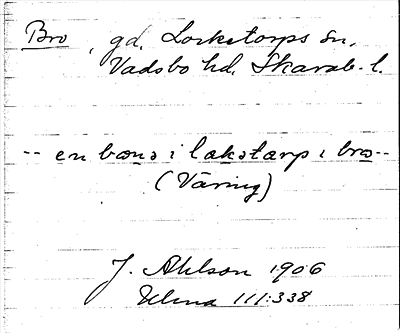 Bro, gd. Locketorps sn,
Vadsbo hd. Skarab. l.
-- en bonə i lakətarp i bro --
(Väring)
J. Ahlson 1906
Ulma 111:338